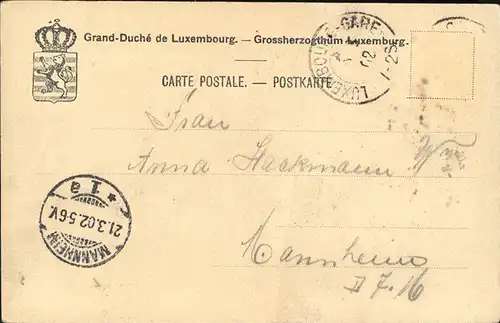 Grand-Duché de Luxembourg. — Grossherzogthum Luxemburg.
CARTE POSTALE. — POSTKARTE
LUXEMBOURG-GARE
02
Frau
Anna Hackmann
MANNHEIM
21.3.02.5-6V.
* 1 a
Mannheim
D 7. 16